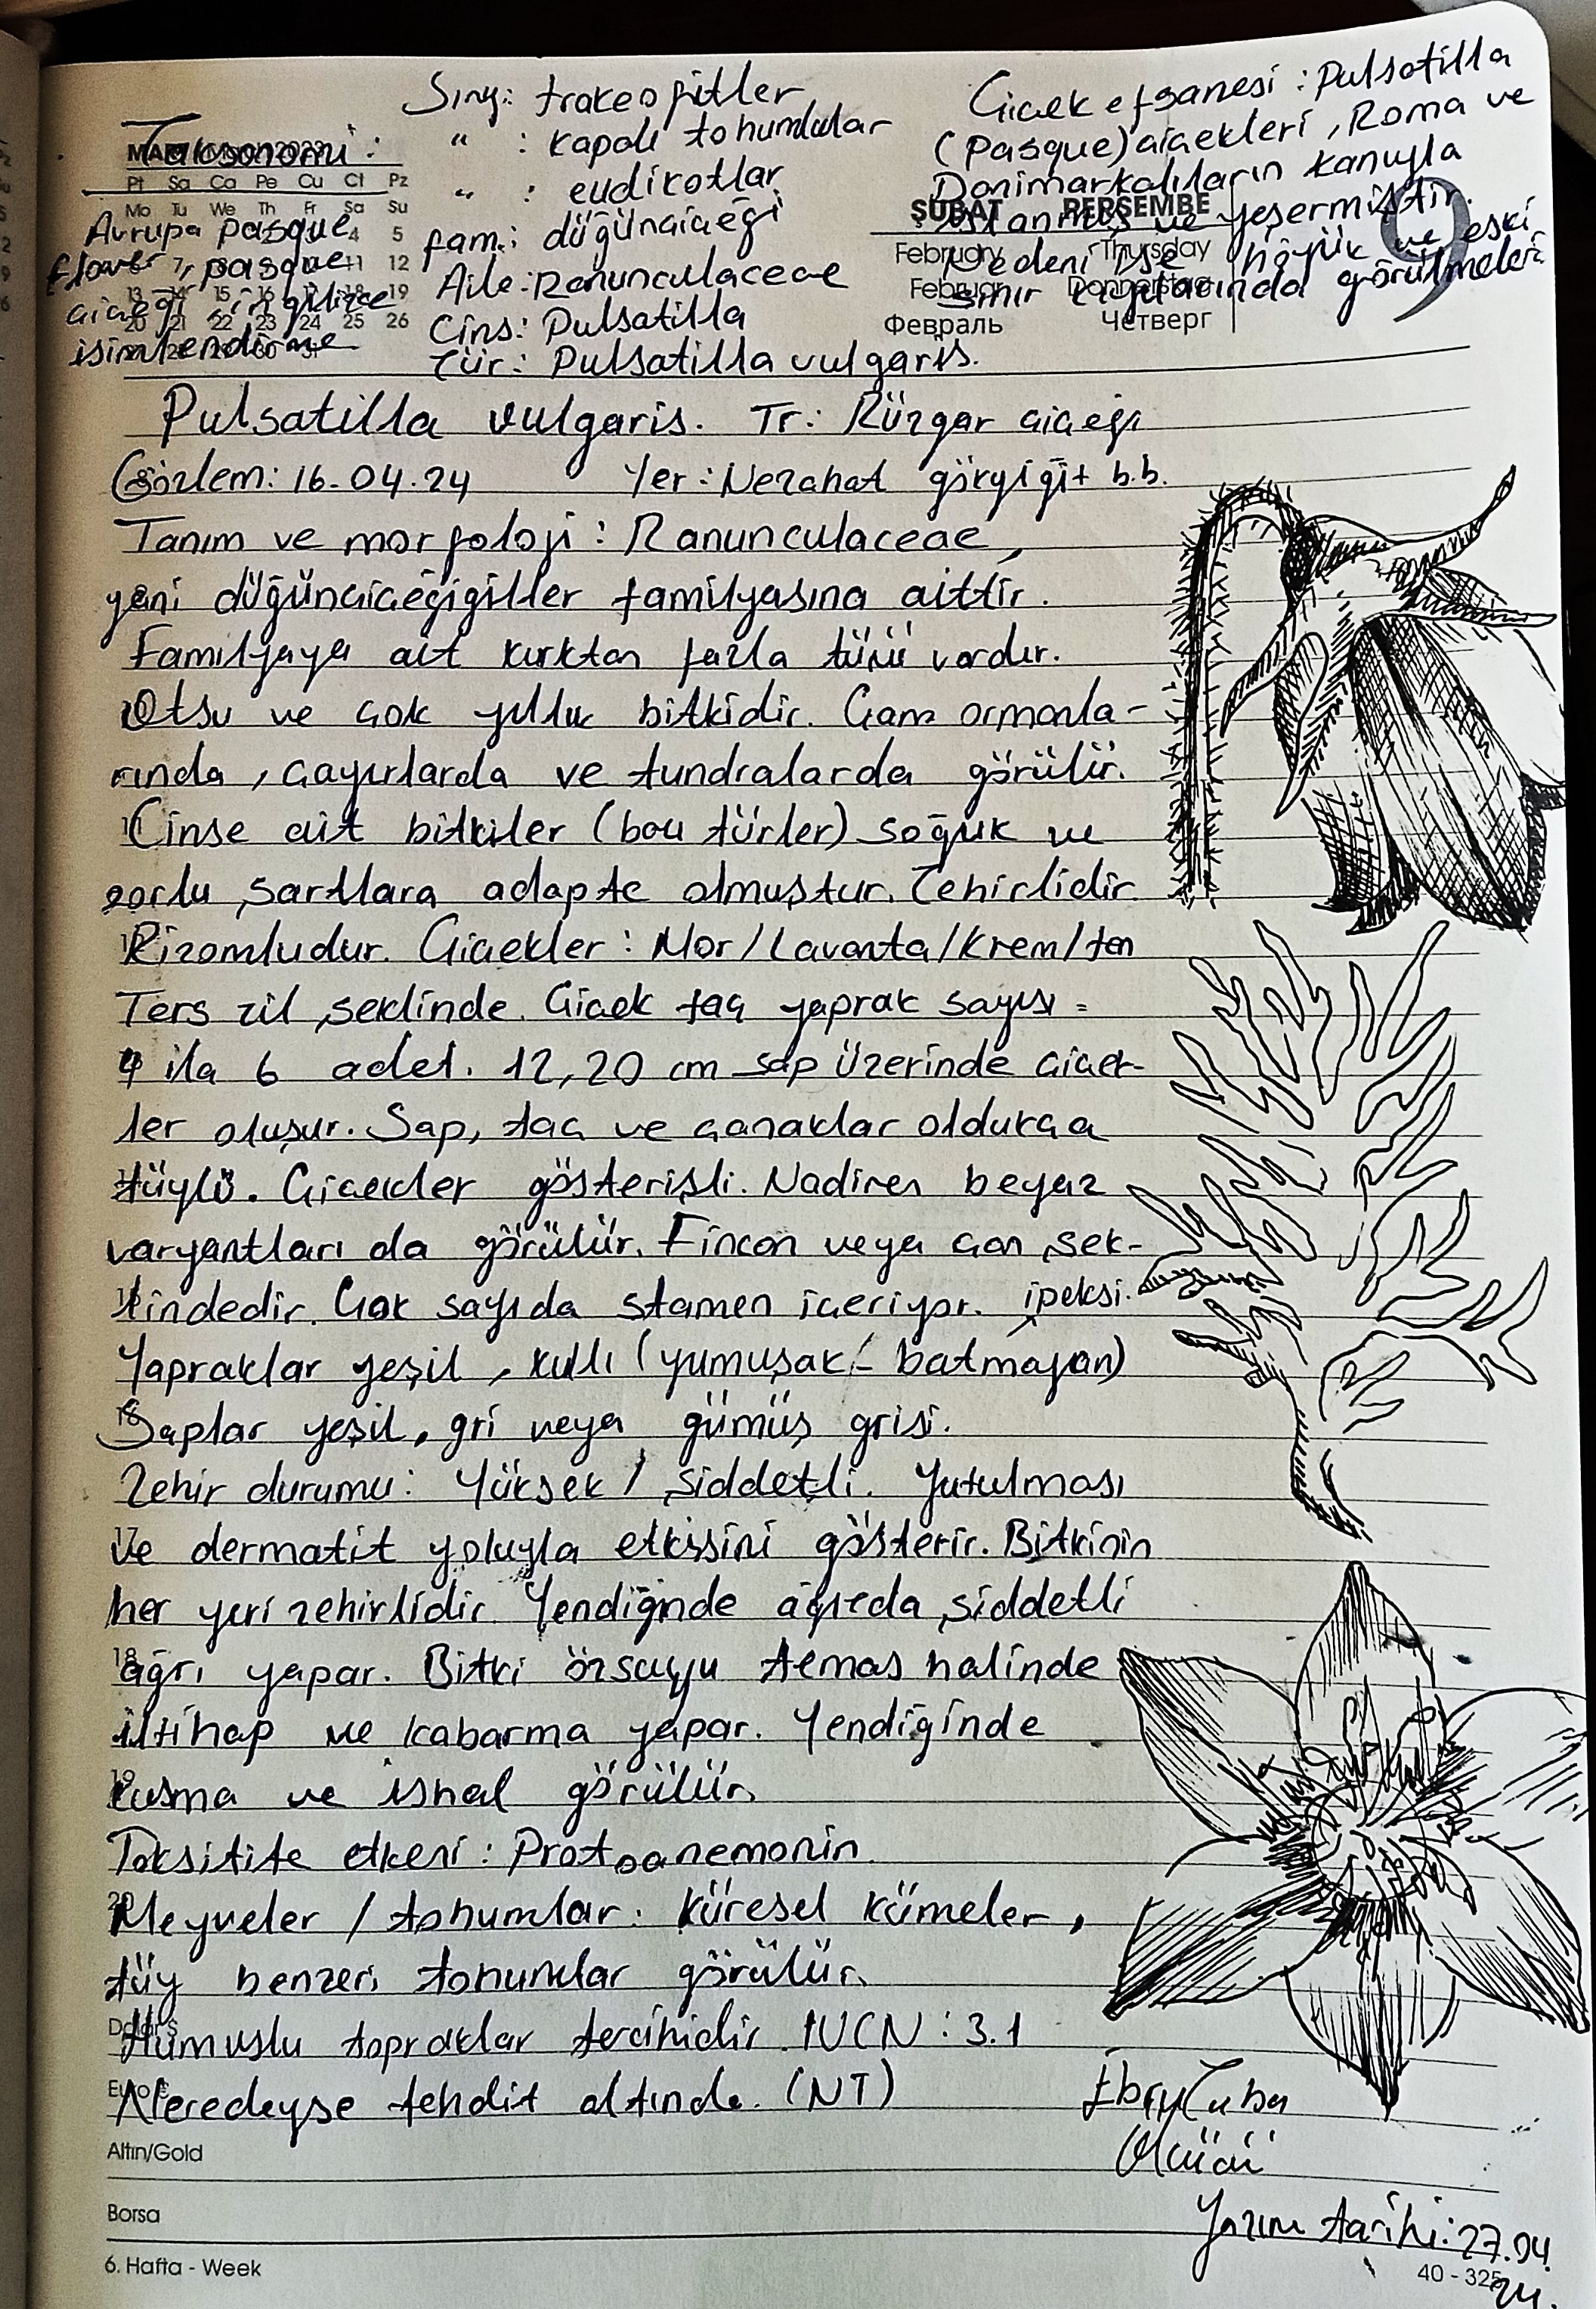 Taksonomi:
Avrupa pasque
flower, pasque
çiçeği ingilizce
isimlendirme
Sınıf: trakeofitler
" : kapalı tohumlular
" : eudikotlar
fam.: düğünçiçeği
Aile: Ranunculaceae
Cins: Pulsatilla
Tür: Pulsatilla vulgaris.
Çiçek efsanesi: Pulsatilla
(Pasque) çiçekleri, Roma ve
Danimarkalıların kanıyla
ıslanmış ve yeşermiştir.
Nedeni ise höyük ve eski
sınır görülmeleri.
Pt Sa Ça Pe Cu Ct Pz
Mo Tu We Th Fr Sa Su
4 5
7 11 12
13 14 15 16 17 18 19
20 21 22 23 24 25 26
30 31
ŞUBAT PERŞEMBE
February Thursday
Februar Donnerstag
Февраль Четверг
9
Pulsatilla vulgaris. Tr: Rüzgar çiçeği
Gözlem: 16.04.24 Yer: Nezahat gökyiğit b.b.
Tanım ve morfoloji: Ranunculaceae,
yani düğünçiçeğigiller familyasına aittir.
Familyaya ait kırktan fazla türü vardır.
Otsu ve çok yıllık bitkidir. Çam ormanla-
rında, çayırlarda ve tundralarda görülür.
Cinse ait bitkiler (bazı türler) soğuk ve
zorlu şartlara adapte olmuştur. Zehirlidir.
Rizomludur. Çiçekler: Mor/Lavanta/Krem/ten
Ters zil şeklinde. Çiçek taç yaprak sayısı =
4 ila 6 adet. 12,20 cm sap üzerinde çiçek-
ler oluşur. Sap, taç ve çanaklar oldukça
tüylü. Çiçekler gösterişli. Nadiren beyaz
varyantları da görülür. Fincan veya çan şek-
lindedir. Çok sayıda stamen içeriyor. ipeksi.
Yapraklar yeşil, kıllı (yumuşak - batmayan)
Saplar yeşil, gri veya gümüş grisi.
Zehir durumu: Yüksek / şiddetli. Yutulması
ve dermatit yoluyla etkisini gösterir. Bitkinin
her yeri zehirlidir. Yendiğinde ağızda şiddetli
ağrı yapar. Bitki özsuyu temas halinde
iltihap ve kabarma yapar. Yendiğinde
kusma ve ishal görülür.
Toksitite etkeni: Protoanemonin.
Meyveler / tohumlar: Küresel kümeler,
tüy benzeri tohumlar görülür.
Humuslu topraklar tercihidir. IUCN: 3.1
Neredeyse tehdit altında. (NT)
Ebru Tuba
Ölçücü
Yazım tarihi: 27.04.
24.
Altın/Gold
Borsa
6. Hafta - Week
40 - 325